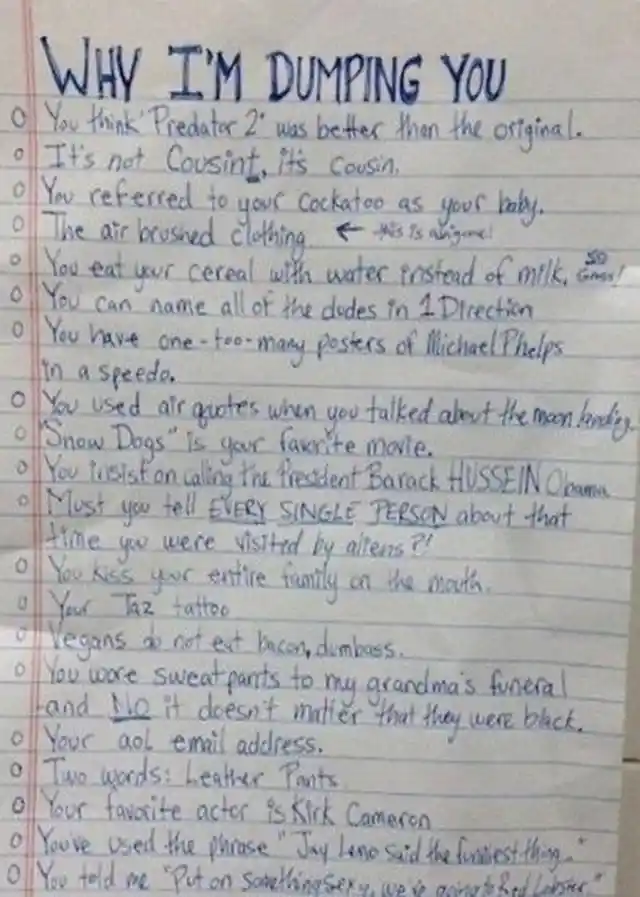 WHY I'M DUMPING YOU
O You think 'Predator 2' was better than the original.
O It's not Cousint, it's cousin.
O You referred to your cockatoo as your baby.
O The air brushed clothing ← this is a
O You eat your cereal with water instead of milk. SO Gross!
O You can name all of the dudes in 1 Direction
O You have one-too-many posters of Michael Phelps
in a speedo.
O You used air quotes when you talked about the moon landing.
O "Snow Dogs" is your favorite movie.
O You insist on calling the President Barack HUSSEIN Obama
O Must you tell EVERY SINGLE PERSON about that
time you were visited by aliens?!
O You kiss your entire family on the mouth.
O Your Taz tattoo
O Vegans do not eat bacon, dumbass.
O You wore sweatpants to my grandma's funeral
and NO it doesn't matter that they were black.
O Your aol email address.
O Two words: Leather Pants
O Your favorite actor is Kirk Cameron
O You've used the phrase "Jay Leno said the funniest thing."
O You told me "Put on something sexy, we're going to Red Lobster."